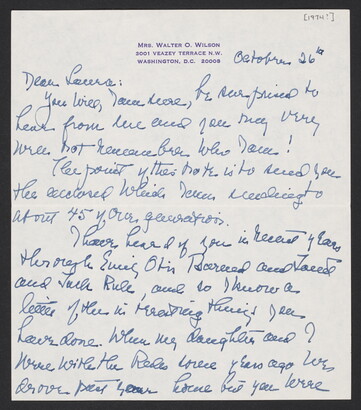 [1974?]
MRS. WALTER O. WILSON
3001 VEAZEY TERRACE N.W.
WASHINGTON, D.C. 20008
October 26th
Dear Laura:
You will, I am sure, be surprised to
hear from me and you may very
well not remember who I am!
The point of this note is to send you
the enclosed which I am sending to
about 45 of our generation.
I have heard of you in recent years
through Emily Otis and
and so I know a
little of the interesting things you
have done. When my daughter and I
were with the some years ago we
drove past your home but you were